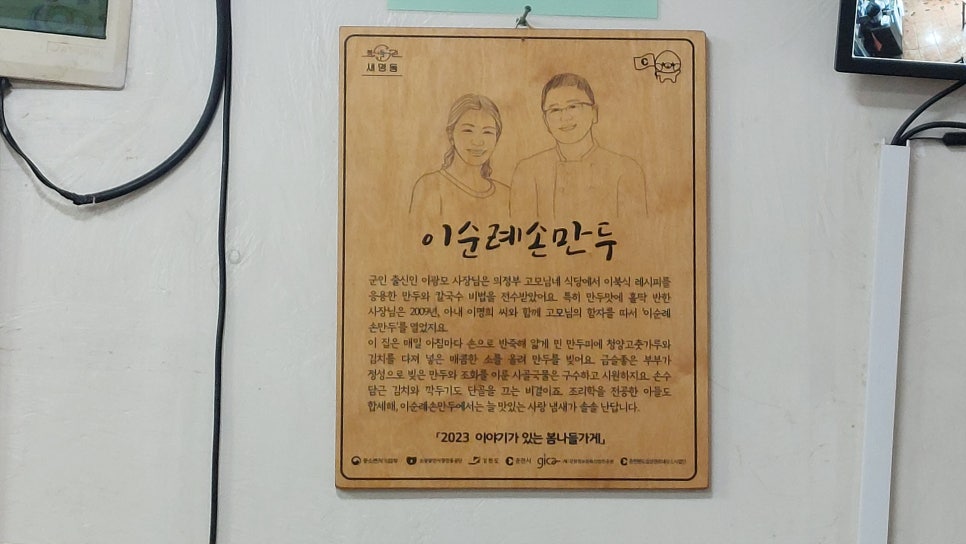 새명동
이순례손만두
군인 출신인 이광모 사장님은 의정부 고모님네 식당에서 이북식 레시피를
응용한 만두와 칼국수 비법을 전수받았어요. 특히 만두맛에 홀딱 반한
사장님은 2009년, 아내 이명희 씨와 함께 고모님의 함자를 따서 '이순례
손만두'를 열었지요.
이 집은 매일 아침마다 손으로 반죽해 얇게 민 만두피에 청양고춧가루와
김치를 다져 넣은 매콤한 소를 올려 만두를 빚어요. 금슬좋은 부부가
정성으로 빚은 만두와 조화를 이룬 사골국물은 구수하고 시원하지요. 손수
담근 김치와 깍두기도 단골을 끄는 비결이죠. 조리학을 전공한 아들도
합세해, 이순례손만두에서는 늘 맛있는 사랑 냄새가 솔솔 난답니다.
「2023 이야기가 있는 봄나들가게」
중소벤처기업부 소상공인시장진흥공단 강원도 춘천시 gica